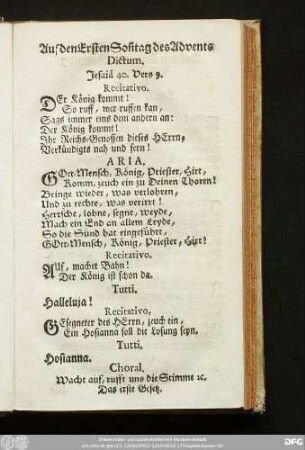 Auf den Ersten Soñtag des Advents
Dictum.
Jesaiä 40. Vers 9.
Recitativo.
DEr König kommt!
So ruff, wer ruffen kan,
Sags immer eins dem andern an:
Der König kommt!
Ihr Reichs-Genossen dieses HErrn,
Verkündigts nah und fern!
ARIA.
GOtt-Mensch, König, Priester, Hirt,
Komm, zeuch ein zu Deinen Thoren!
Bringe wieder, was verlohren,
Und zu rechte, was verirrt!
Herrsche, lohne, segne, weyde,
Mach ein End an allem Leyde,
So die Sünd hat eingeführt,
GOtt-Mensch, König, Priester, Hirt!
Recitativo.
AUf, machet Bahn!
Der König ist schon da.
Tutti.
Halleluja!
Recitativo.
GEsegneter des HErrn, zeuch ein,
Ein Hosianna soll die Losung seyn.
Tutti.
Hosianna.
Choral.
Wacht auf, rufft uns die Stimme ꝛc.
Das erste Gesetz.